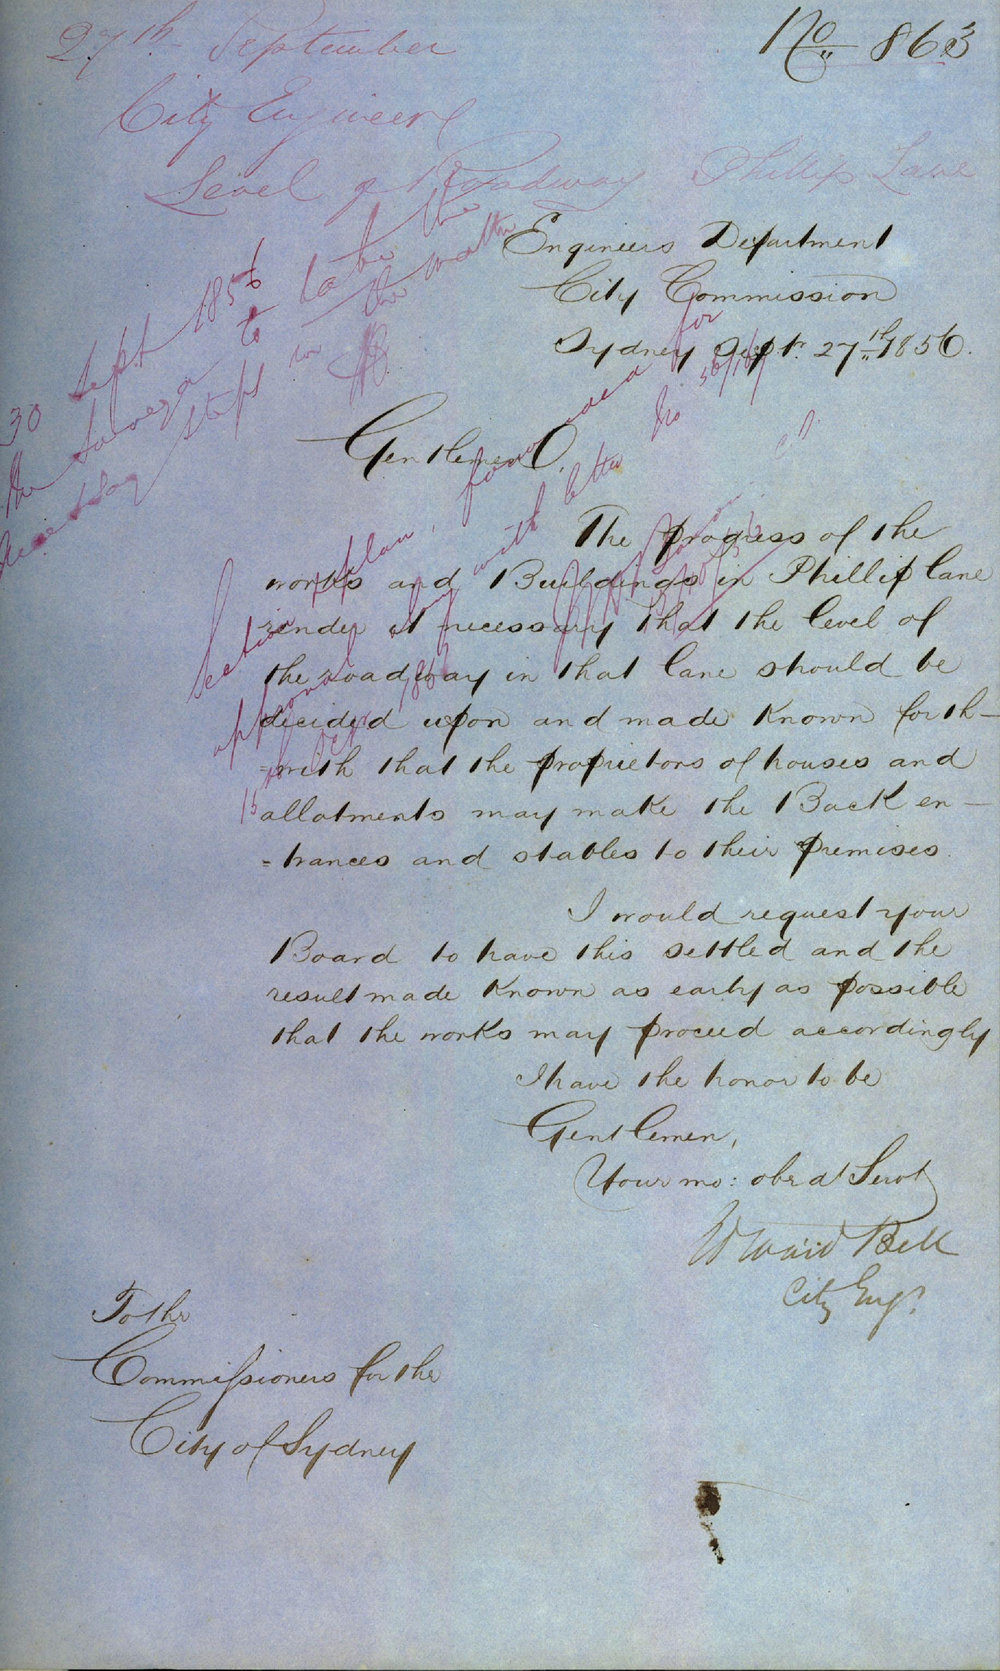 No 863
27th September
City Engineer
Level of Roadway Phillip Lane
Engineers Department
City Commission
Sydney Sept. 27th 1856.
30 Sept 1856
the Surveyor to take the
necessary steps in the matter
Gentlemen,
Section & plan, forwarded for
approval with letter No 56/
15 1856
The progress of the
works and Buildings in Phillip lane
render it necessary that the level of
the roadway in that lane should be
decided upon and made known forth-
=with that the proprietors of houses and
allotments may make the Back en-
=trances and stables to their premises.
I would request your
Board to have this settled and the
result made known as early as possible
that the works may proceed accordingly
I have the honor to be
Gentlemen,
Your mo: obed Servt
Edward Bell
City Engr.
To the
Commissioners for the
City of Sydney